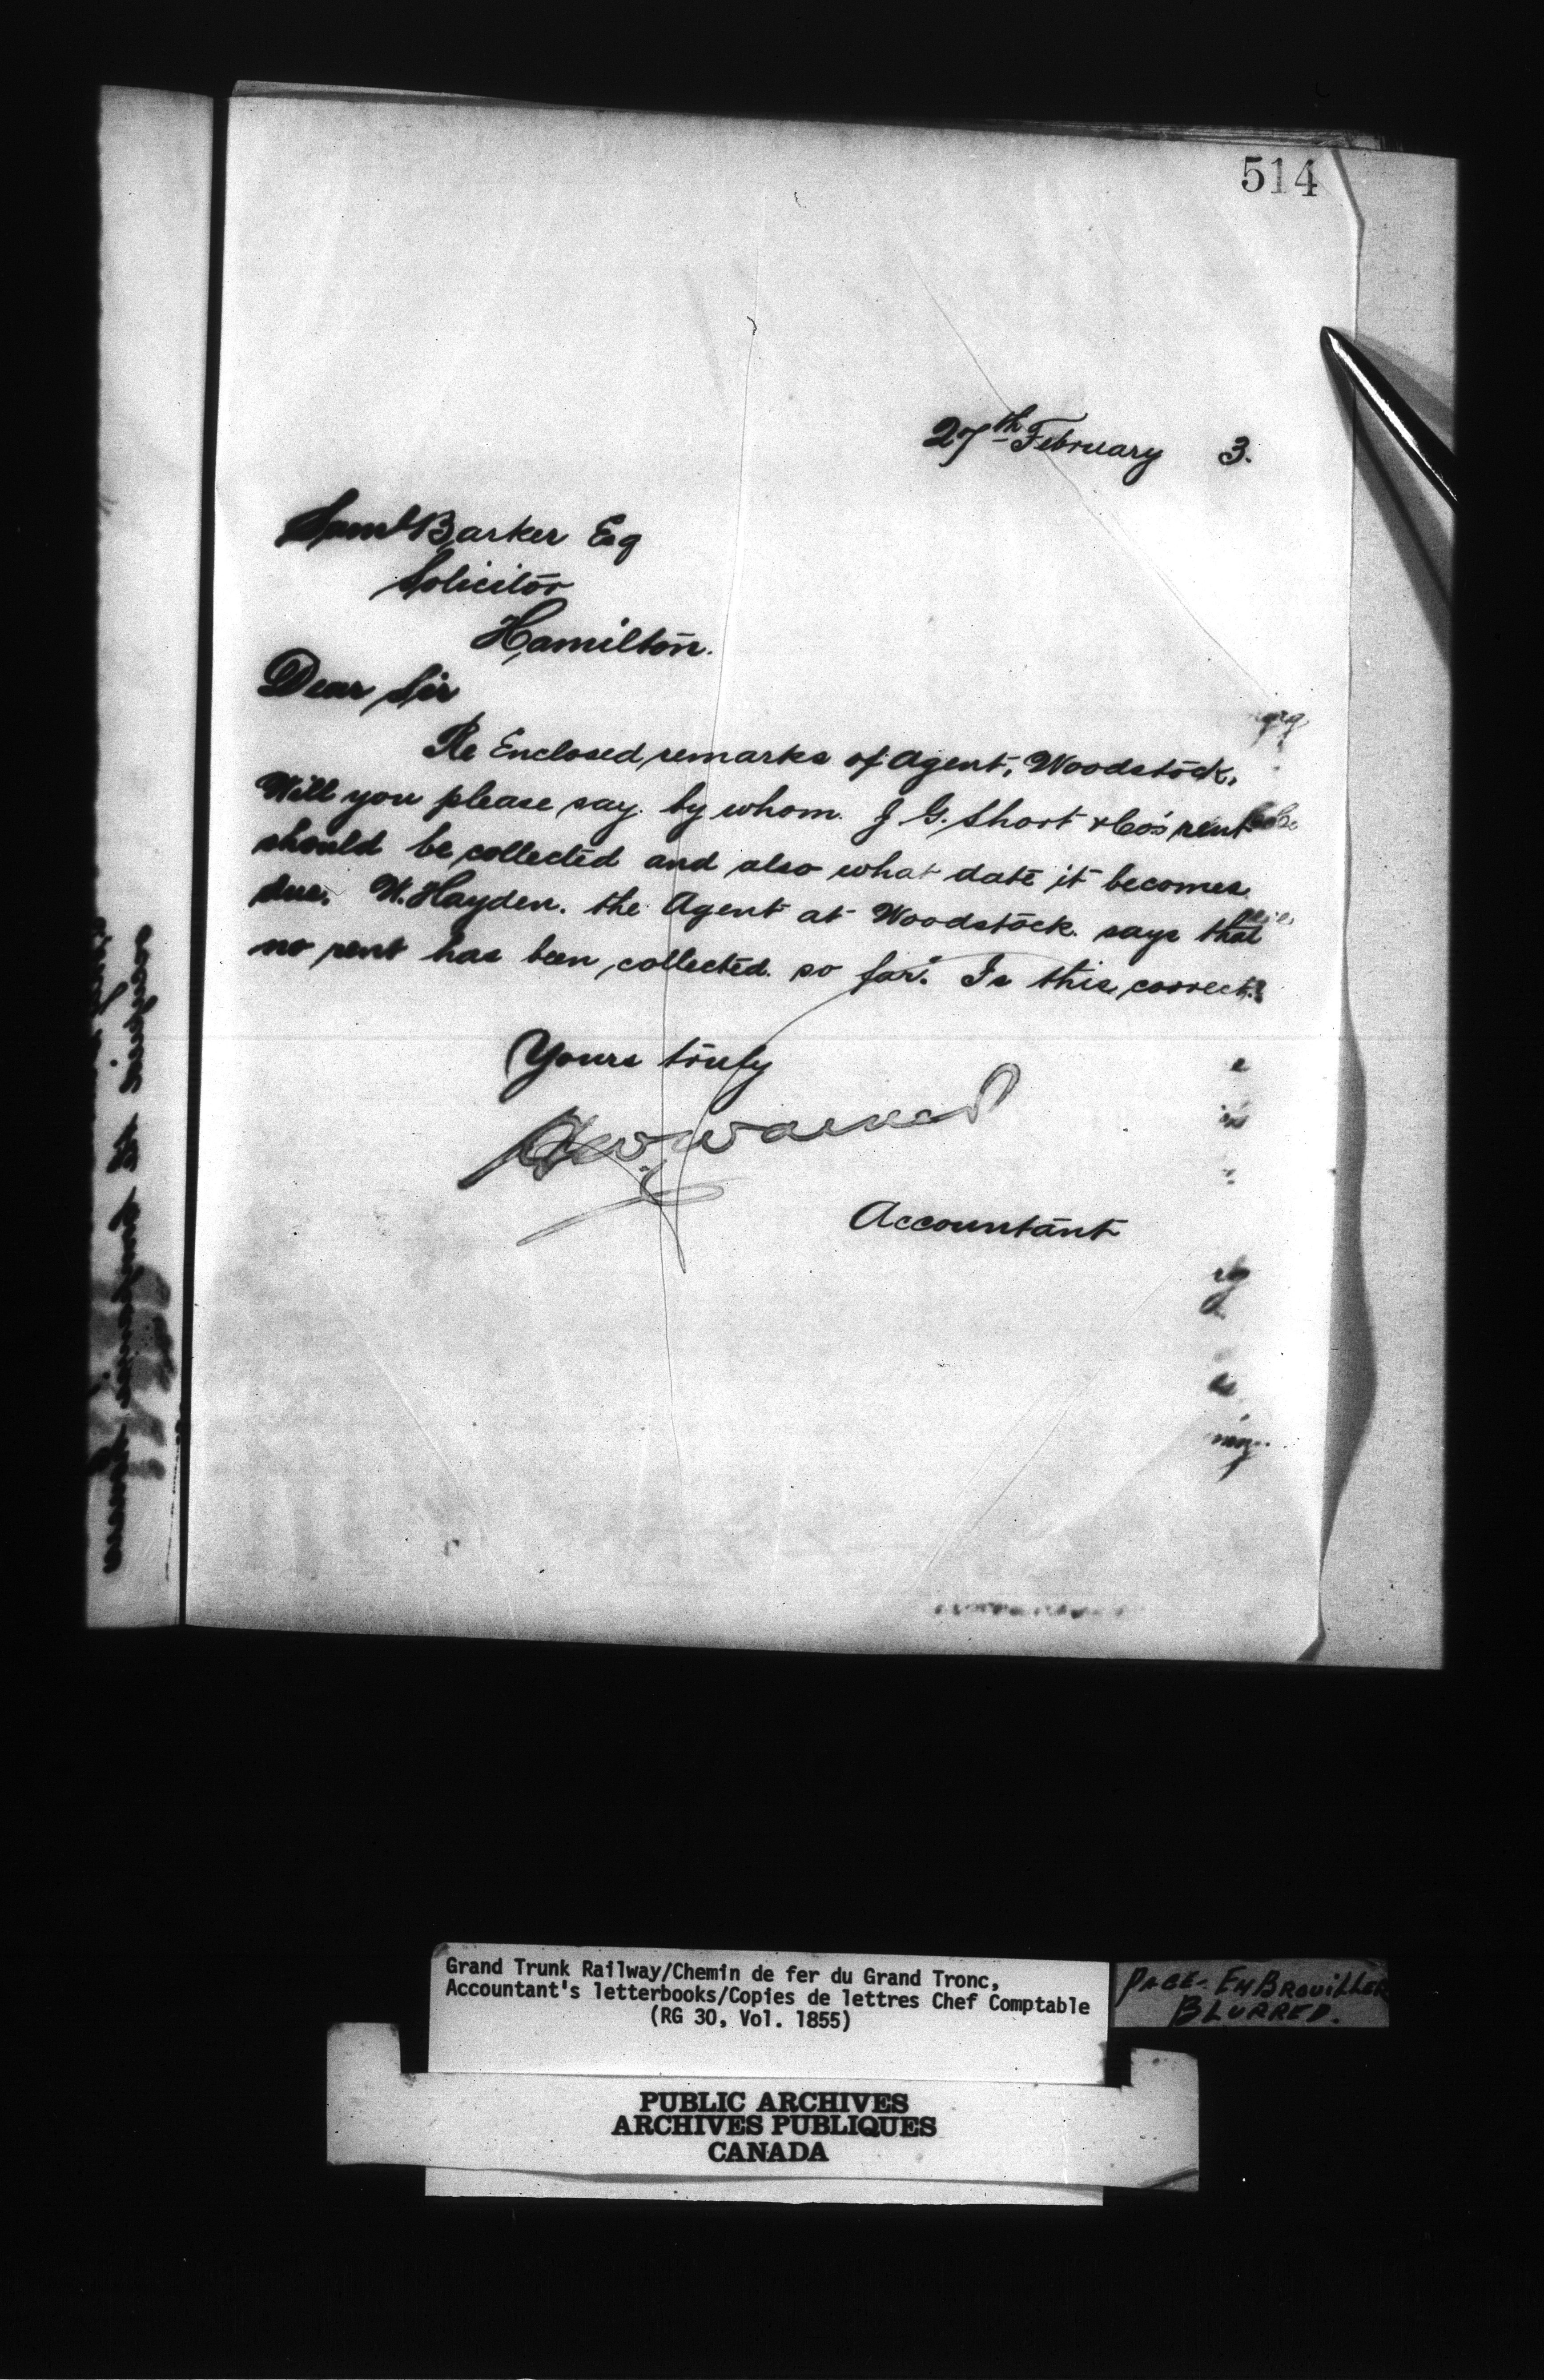 514
27th February 3.
Saml Barker Esq
Solicitor
Hamilton.
Dear Sir
Re Enclosed remarks of Agent, Woodstock.
Will you please say by whom J G. Short & Co's rent
should be collected and also what date it becomes
due. W. Hayden. the Agent at Woodstock. says that
no rent has been collected so far. Is this correct?
Yours truly
Accountant
Grand Trunk Railway/Chemin de fer du Grand Tronc,
Accountant's letterbooks/Copies de lettres Chef Comptable
(RG 30, Vol. 1855)
PAGE- EMBROUILLER
BLURRED.
PUBLIC ARCHIVES
ARCHIVES PUBLIQUES
CANADA